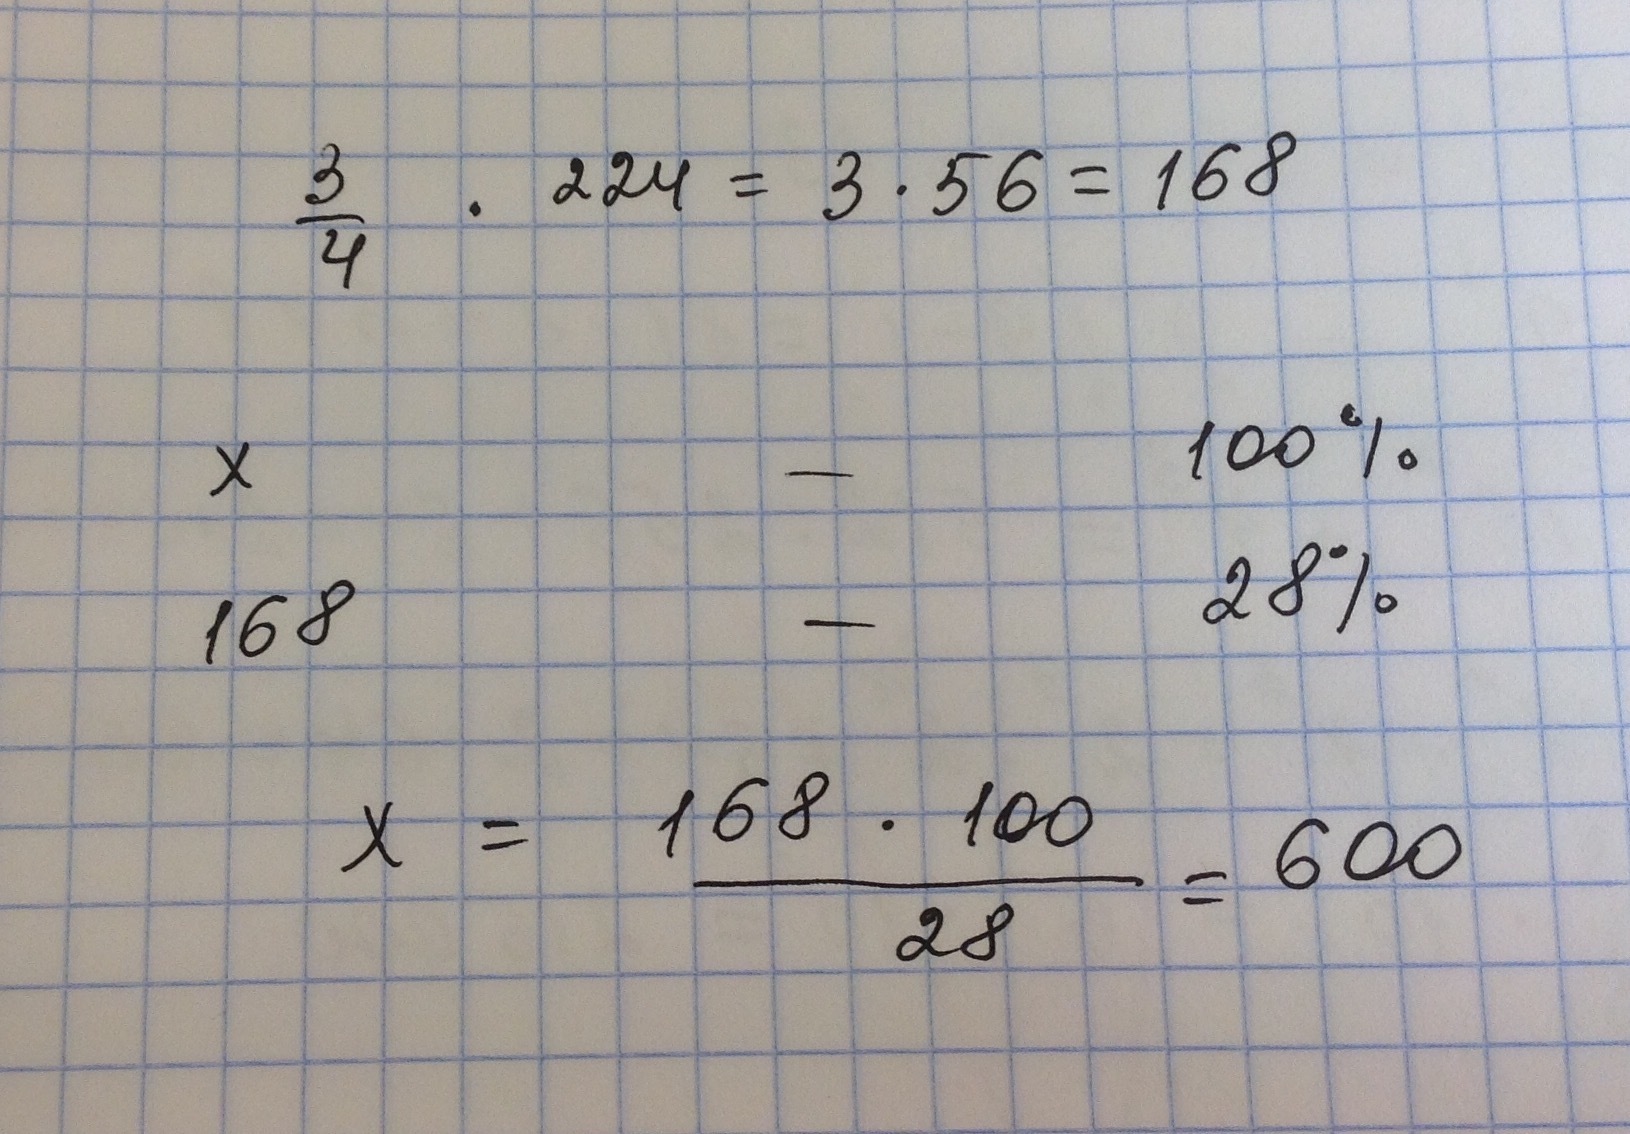 3/4 · 224 = 3 · 56 = 168
x — 100%
168 — 28%
x = 168 · 100 / 28 = 600